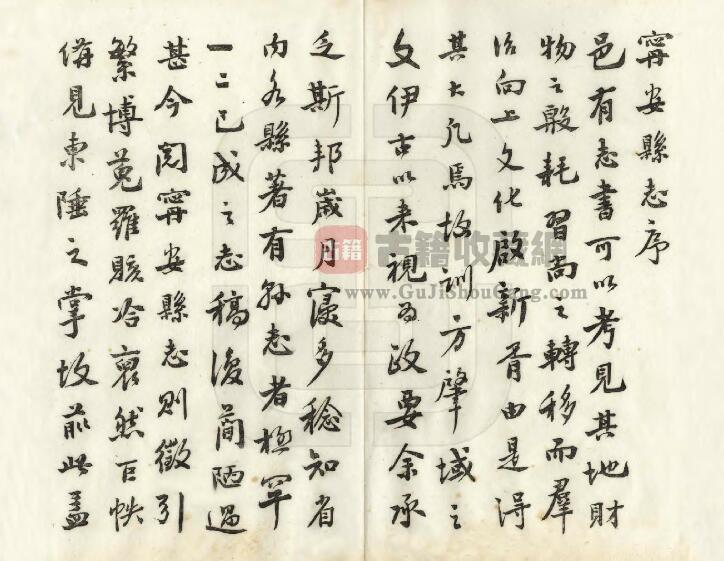 寗安縣志序
邑有志書可以考見其地財
物之殷耗習尚之轉移而羣
治向上文化啟新胥由是得
其大凡焉故訓方肇域之
文伊古以来視為政要余承
乏斯邦歲月寖多稔知省
内各縣著有縣志者極罕
一二已成之志稿復蕳陋過
甚今閲寗安縣志則徵引
繁博蒐羅賅洽裒然巨帙
備見東陲之掌故前此蓋
古籍
古籍收藏網
www.GuJiShouCang.com